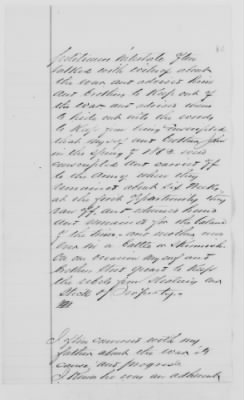 petitioners intestate often
talked with witness about
the war and advised him
and brothers to keep out of
the war and advised them
to hide out into the woods
to keep from being conscripted
that myself and brother John
in the Spring of 1862 was
conscripted and carried off
to the Army where they
remained about six weeks,
at the first opportunity they
ran off, and returned home
and remained for the balance
of the time, and neither was
ever in a battle or skirmish
On one occasion myself and
brother stood guard to keep
the rebels from stealing our
stock &c property.
I often conversed with my
father about the war its
cause and progress
I know he was an adherent